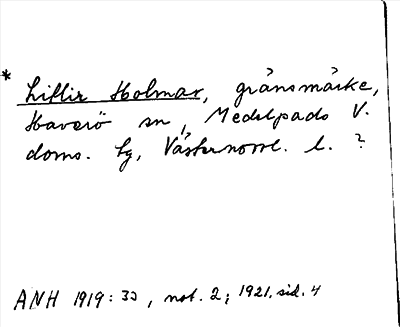 * Litlir Holmar, gränsmärke,
Haverö sn, Medelpads V.
doms. tg, Västernorrl. l. ?
ANH 1919: 33, not. 2; 1921. sid. 4